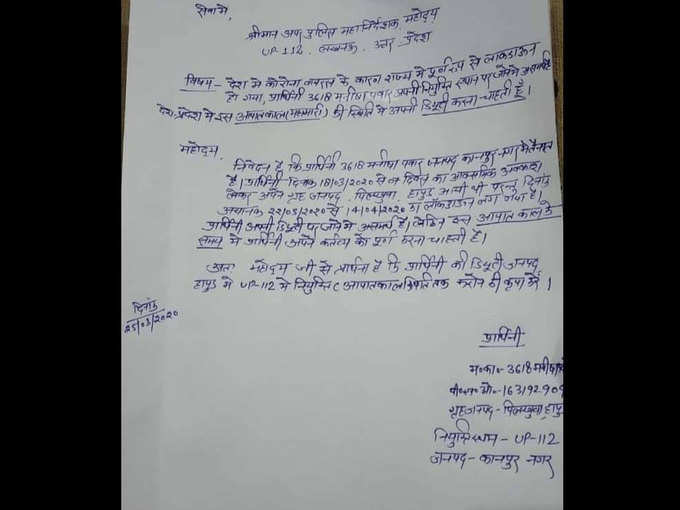 सेवा में,
श्रीमान अपर पुलिस महानिर्देशक, महोदय
UP-112, लखनऊ, उत्तर प्रदेश
विषय - देश में कोरोना वायरस के कारण राज्य में पूर्ण रूप से लाकडाऊन
हो गया, प्रार्थिनी 3618 मनीषा पवार अपनी नियुक्ति स्थान पर जाने में असमर्थ है
देश-प्रदेश में इस आपातकाल (महामारी) की स्थिति में अपनी डियूटी करना चाहती है।
महोदय,
निवेदन है कि प्रार्थिनी 3618 मनीषा पवार जनपद कानपुर नगर में तैनात
है। प्रार्थिनी दिनांक 18/03/2020 से दिवस का आकस्मिक अवकाश
लेकर अपने गृह जनपद, पिलखुवा, हापुड आयी थी परन्तु दिनांक
अचानक 22/03/2020 से 14/04/2020 लाकडाउन लग गया है।
प्रार्थिनी अपनी डियूटी पर जाने में असमर्थ है। लेकिन इस आपात काल के
समय में प्रार्थिनी अपने कर्तव्य को पूर्ण करना चाहती है।
अतः महोदय जी से प्रार्थना है कि प्रार्थिनी की डियूटी जनपद
हापुड में UP-112 में नियुक्ति (आपातकाल स्थिति तक करने की कृपा करें।
दिनांक
25/03/2020
प्रार्थिनी
म०का०- 3618 मनीषा
पी०एन०ओ०-163192909
गृहजनपद - पिलखुवा, हापु
नियुक्तिस्थान - UP-112
जनपद - कानपुर नगर